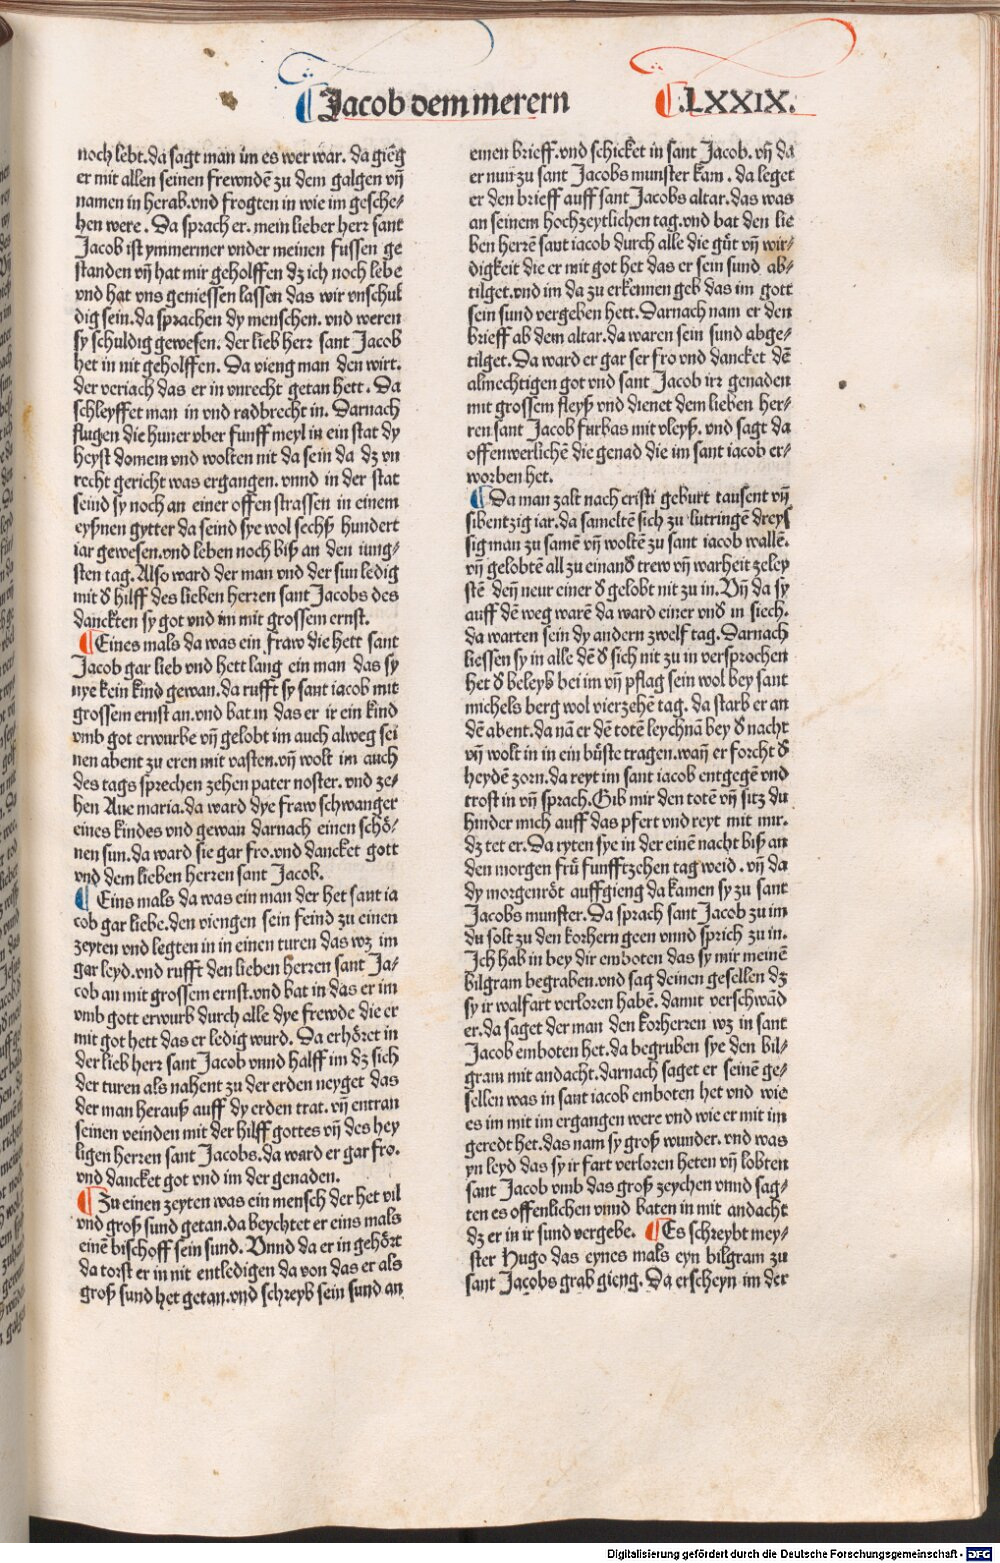 ¶Jacob dem merern
¶.LXXIX.
noch lebt.da sagt man im es wer war. da gieng
er mit allen seinen frewndē zu dem galgen vñ
namen in herab.vnd frogten in wie im gesche⸗
hen were. Da sprach er. mein lieber herr sant
Jacob ist ymmermer vnder meinen fussen ge
standen vñ hat mir geholffen dz ich noch lebe
vnd hat vns geniessen lassen das wir vnschul
dig sein.da sprachen dy menschen. vnd weren
sy schuldig gewesen. der lieb herr sant Jacob
het in nit geholffen. Da vieng man den wirt.
der veriach das er in vnrecht getan hett. Da
schleyffet man in vnd radbrecht in. Darnach
flugen die huner vber funff meyl in ein stat dy
heyst domem vnd wolten nit da sein da dz vn
recht gericht was ergangen. vnnd in der stat
seind sy noch an einer offen strassen in einem
eyßnen gytter da seind sye wol sechß hundert
iar gewesen.vnd leben noch biß an den iung⸗
sten tag. Also ward der man vnd der sun ledig
mit d̄ hilff des lieben herren sant Jacobs des
danckten sy got vnd im mit grossem ernst.
¶Eines mals da was ein fraw die hett sant
Jacob gar lieb vnd hett lang ein man das sy
nye kein kind gewan.da rufft sy sant iacob mit
grossem ernst an.vnd bat in das er ir ein kind
vmb got erwurbe vñ gelobt im auch alweg sei
nen abent zu eren mit vasten.vñ wolt im auch
des tags sprechen zehen pater noster. vnd ze⸗
hen Aue maria.da ward dye fraw schwanger
eines kindes vnd gewan darnach einen schö⸗
nen sun.da ward sie gar fro.vnd dancket gott
vnd dem lieben herren sant Jacob.
¶Eins mals da was ein man der het sant ia
cob gar liebe.den viengen sein feind zu einen
zeyten vnd legten in in einen turen das wz im
gar leyd.vnd rufft den lieben herren sant Ja⸗
cob an mit grossem ernst.vnd bat in das er im
vmb gott erwurb durch alle dye frewde die er
mit got hett das er ledig wurd. Da erhöret in
der lieb herr sant Jacob vnnd halff im dz sich
der turen als nahent zu der erden neyget das
der man herauß auff dy erden trat. vñ entran
seinen veinden mit der hilff gottes vñ des hey
ligen herren sant Jacobs.da ward er gar fro.
vnd dancket got vnd im der genaden.
¶Zu einen zeyten was ein mensch der het vil
vnd groß sund getan.da beychtet er eins mals
einē bischoff sein sund. Vnnd da er in gehört
da torst er in nit entledigen da von das er als
groß sund het getan.vnd schreyb sein sund an
einen brieff.vnd schicket in sant Jacob. vñ da
er nun zu sant Jacobs munster kam. da leget
er den brieff auff sant Jacobs altar.das was
an seinem hochzeytlichen tag.vnd bat den lie
ben herrē sant iacob durch alle die güt vñ wir⸗
digkeit die er mit got het das er sein sund ab⸗
tilget.vnd im da zu erkennen geb das im gott
sein sund vergeben hett. Darnach nam er den
brieff ab dem altar.da waren sein sund abge⸗
tilget. Da ward er gar ser fro vnd dancket dē
almechtigen got vnd sant Jacob irr genaden
mit grossem fleyß vnd dienet dem lieben her⸗
ren sant Jacob furbas mit vleyß. vnd sagt da
offenwerlichē die genad die im sant iacob er⸗
worben het.
¶Da man zalt nach cristi geburt tausent vñ
sibentzig iar.da sameltē sich zu lutringē dreys
sig man zu samē vñ woltē zu sant iacob wallē.
vñ gelobtē all zu einand̄ trew vñ warheit zeley
stē deñ neur einer d̄ gelobt nit zu in. Vñ da sy
auff dē weg warē da ward einer vnd̄ in siech.
da warten sein dy andern zwelf tag. Darnach
liessen sy in alle dē d̄ sich nit zu in versprochen
het d̄ beleyb bei im vñ pflag sein wol bey sant
michels berg wol vierzehē tag. da starb er an
dē abent.da nā er dē totē leychnā bey d̄ nacht
vñ wolt in in ein büste tragen.wañ er forcht d̄
heydē zorn.da reyt im sant iacob entgegē vnd
trost in vñ sprach.Gib mir den totē vñ sitz du
hinder mich auff das pfert vnd reyt mit mir.
dz tet er. Da ryten sye in der einē nacht biß an
den morgen frü funfftzehen tag weid. vñ da
dy morgenröt auffgieng da kamen sy zu sant
Jacobs munster. Da sprach sant Jacob zu im
du solt zu den korhern geen vnnd sprich zu in.
Ich hab in bey dir emboten das sy mir meinē
bilgram begraben.vnd sag deinen gesellen dz
sy ir walfart verloren habē. damit verschwād
er.da saget der man den korherren wz in sant
Jacob emboten het.da begruben sye den bil⸗
gram mit andacht.darnach saget er seinē ge⸗
sellen was in sant iacob emboten het vnd wie
es im mit im ergangen were vnd wie er mit im
geredt het.das nam sy groß wunder. vnd was
yn leyd das sy ir fart verloren heten vñ lobten
sant Jacob vmb das groß zeychen vnnd sag⸗
ten es offenlichen vnnd baten in mit andacht
dz er in ir sund vergebe. ¶Es schreybt mey⸗
ster Hugo das eynes mals eyn bilgram zu
sant Jacobs grab gieng. Da erscheyn im der
Digitalisierung gefördert durch die Deutsche Forschungsgemeinschaft - DFG